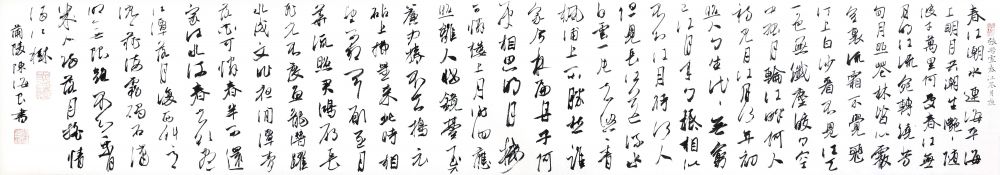 張若虛春江花月夜
春江潮水連海平海
上明月共潮生灩灩隨
波千万里何處春江無
月明江流宛轉繞芳
甸月照花林皆似霰
空裏流霜不覺飛
汀上白沙看不見江天
一色無纖塵皎皎空
中孤月輪江畔何人
初見月江月何年初
照人人生代代無窮
已江月年年望相似
不知江月待何人
但見長江送流水
白雲一片去悠悠青
楓浦上不勝愁誰
家今夜扁舟子何
處相思明月樓
可憐樓上月徘徊應
照離人妝鏡臺玉户
簾中捲不去搗衣
砧上拂還來此時相
望不相聞願逐月
華流照君鴻雁長
飛光不度魚龍潛躍
水成文昨夜閑潭夢
落花可憐春半不還
家江水流春去欲盡
江潭落月復西斜斜
月沉沉藏海霧碣石瀟
湘無限路不知乘月
幾人歸落月摇情
滿江樹
蘭陵陳海良書